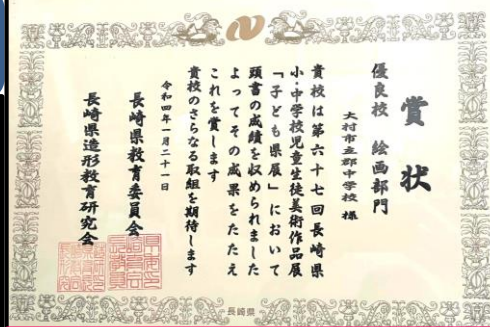 賞状
優良校 絵画部門
大村市立郡中学校 様
貴校は第六十七回長崎県
小・中学校児童生徒美術作品展
「子ども県展」において
頭書の成績を収められました
よってその成果をたたえ
これを賞します
貴校のさらなる取組を期待します
令和四年一月二十一日
長崎県教育委員会
長崎県造形教育研究会
長崎県